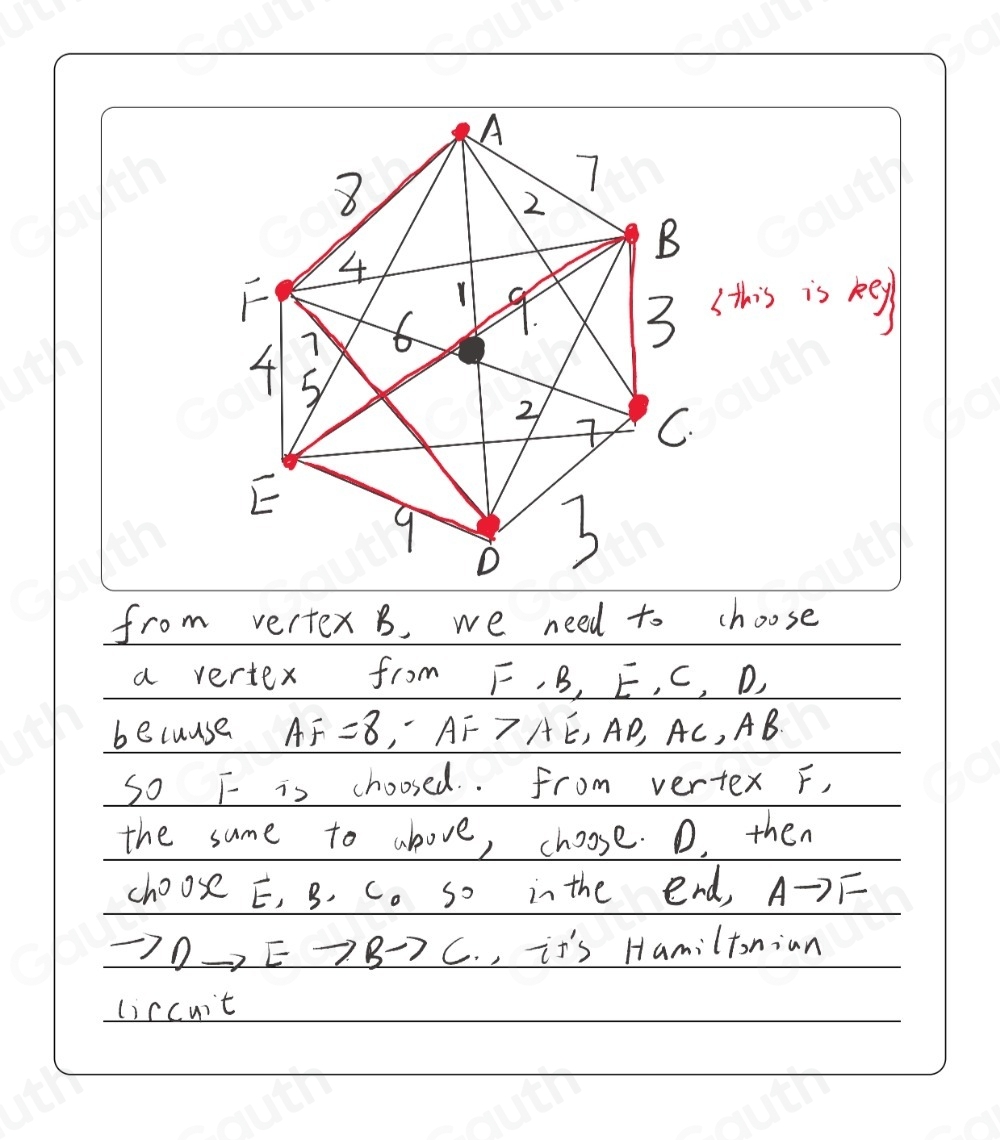 A
7
8
2
B
4
F
1
9.
{this is key}
3
6
7
4
5
2
7
C.
E
9
3
D
from vertex B, we need to choose
a vertex from F, B, E, C, D,
because AF = 8, AF > AE, AD, AC, AB.
so F is choosed.. from vertex F,
the same to above, choose. D, then
choose E, B, C. so in the end, A→F
→D→E→B→C., it's Hamiltonian
circuit
Gauth